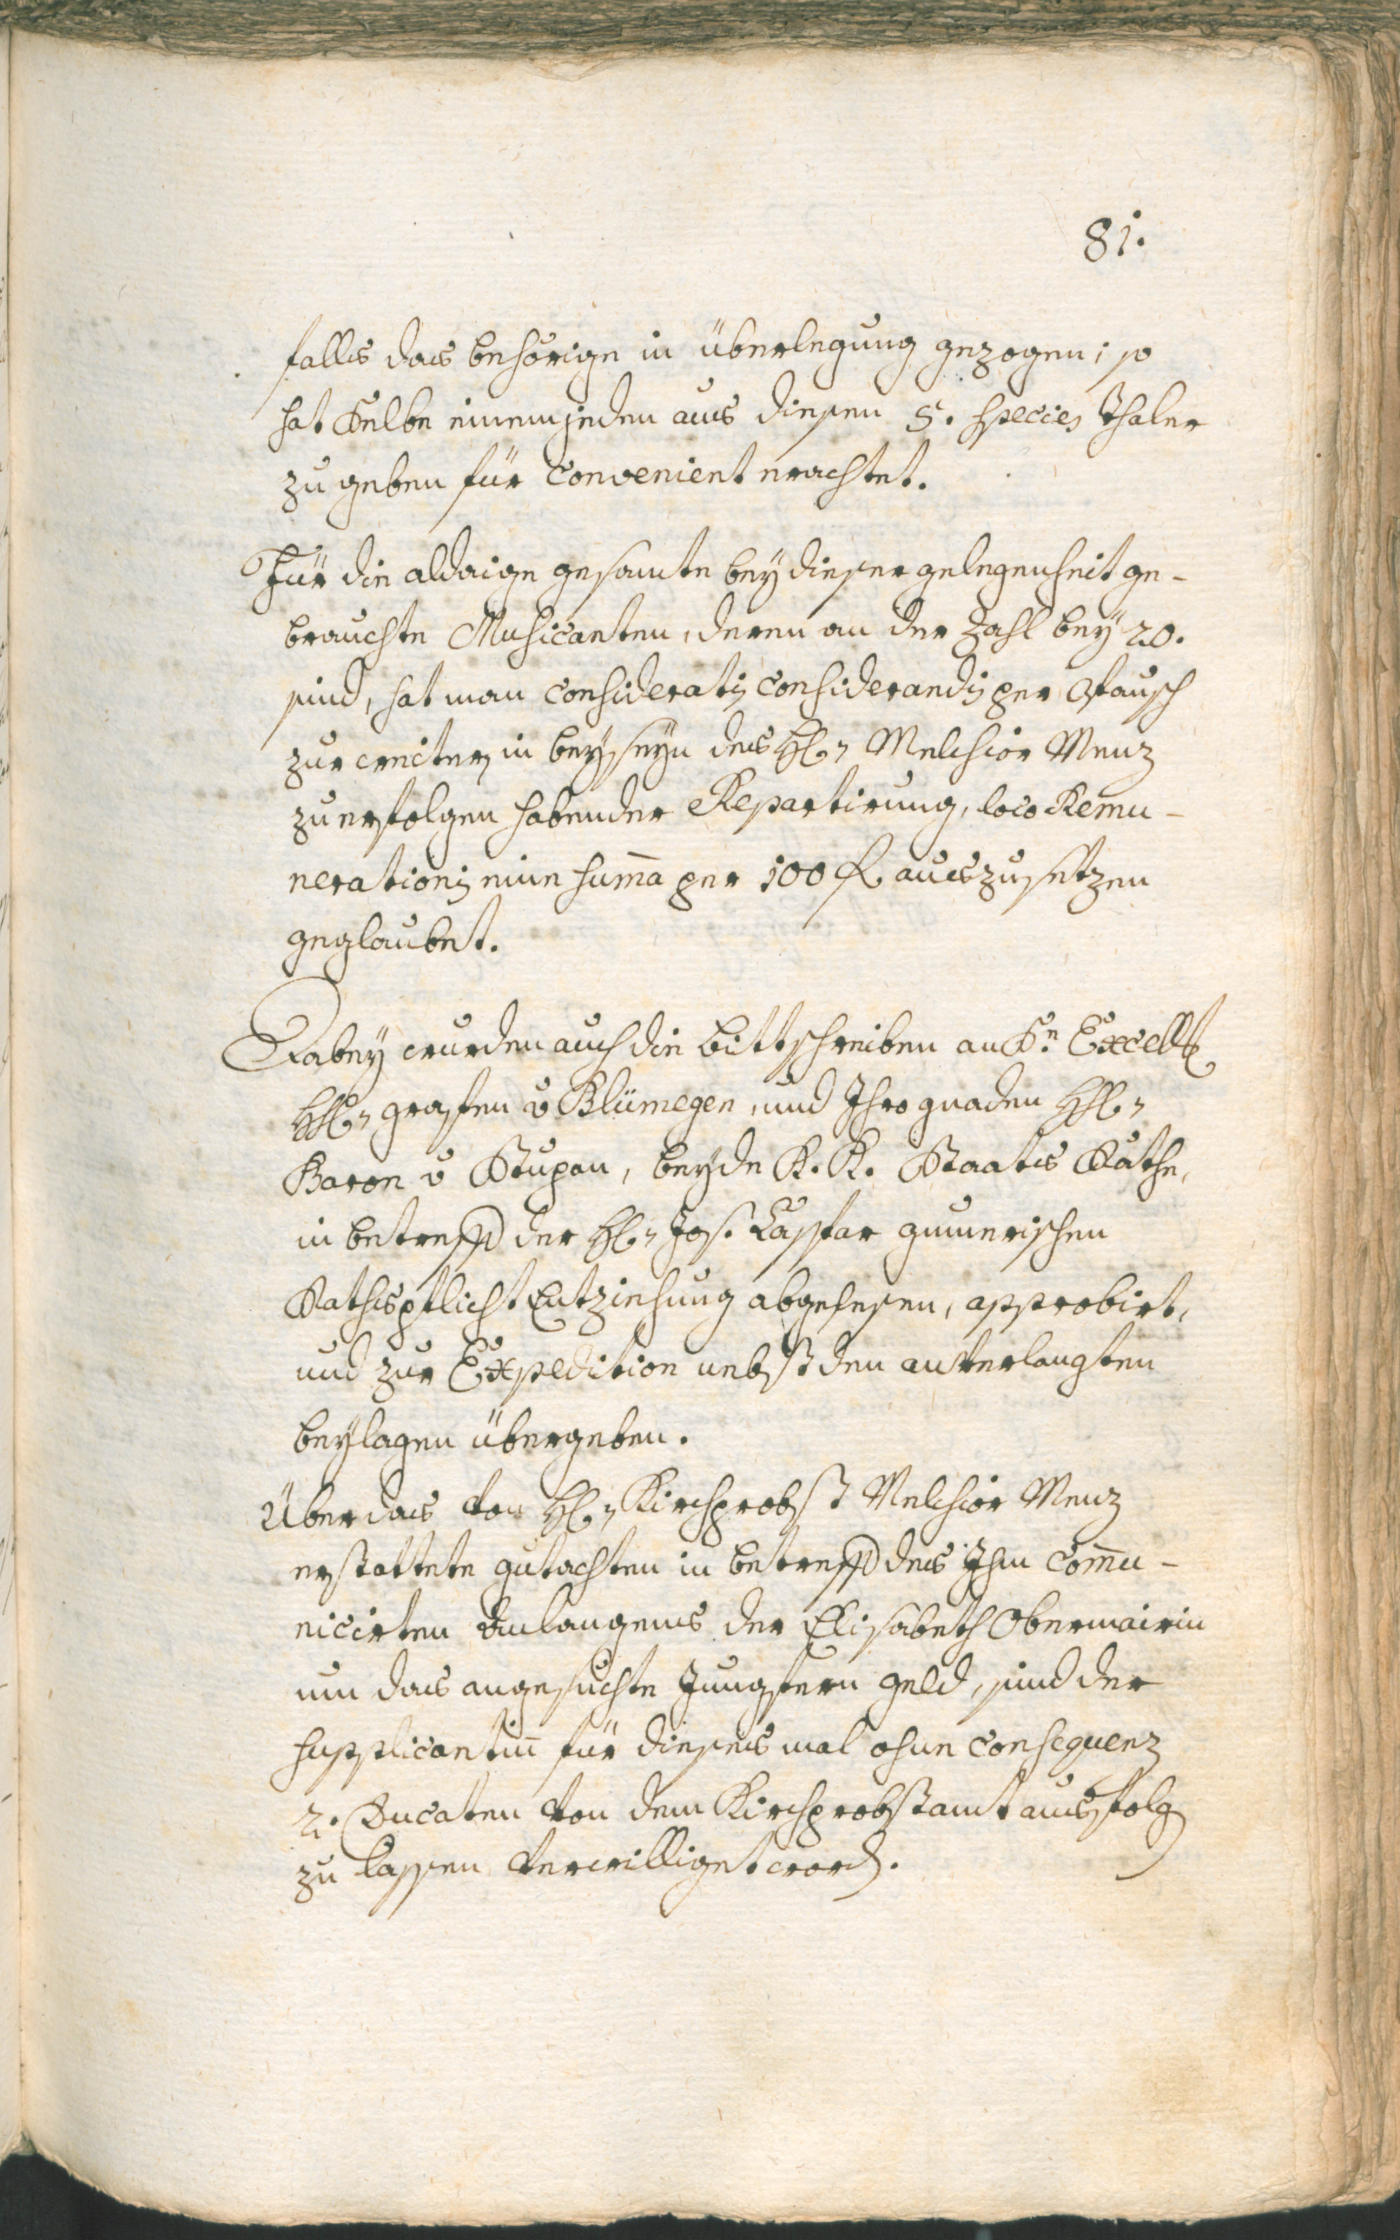 81.
falls das behörige in überlegung gezogen; so
hat Selbe einem jeden aus diesen 5. Species Thaler
zu geben für Convenient erachtet.
Für die aldaige gesamte bey dieser gelegenheit ge-
brauchte Musicanten, deren an der Zahl bey 20.
sind, hat man Consideratis Considerandis per
zur weiters in beyseyn des H: Melchior Menz
zu erfolgen habender Repartirung, loco Remu-
nerationis eine Summa per 100 f. auszusetzen
geglaubet.
Dabey wurden auch die bittschreiben an Sr. Excell
H: grafen v Blümegen, und Ihro gnaden H:
Baron v Stupan, beyde K. K. Staats Räthe,
in betreff der H: Jos. Caspar gumerischen
Rathspflicht Entziehung abgelesen, approbirt,
und zur Expedition nebst den anverlangten
beylagen übergeben.
Über das von H: Kirchprobst Melchior Menz
erstattete gutachten in betreff des Ihm Commu-
nicirten Anlangens der Elisabeth Obermairin
um das angesuchte Jungfern geld, sind der
Supplicantin für dieses mal ohne Consequenz
2. Ducaten von dem Kirchprobstamt ausfolg
zu lassen verwilliget word.